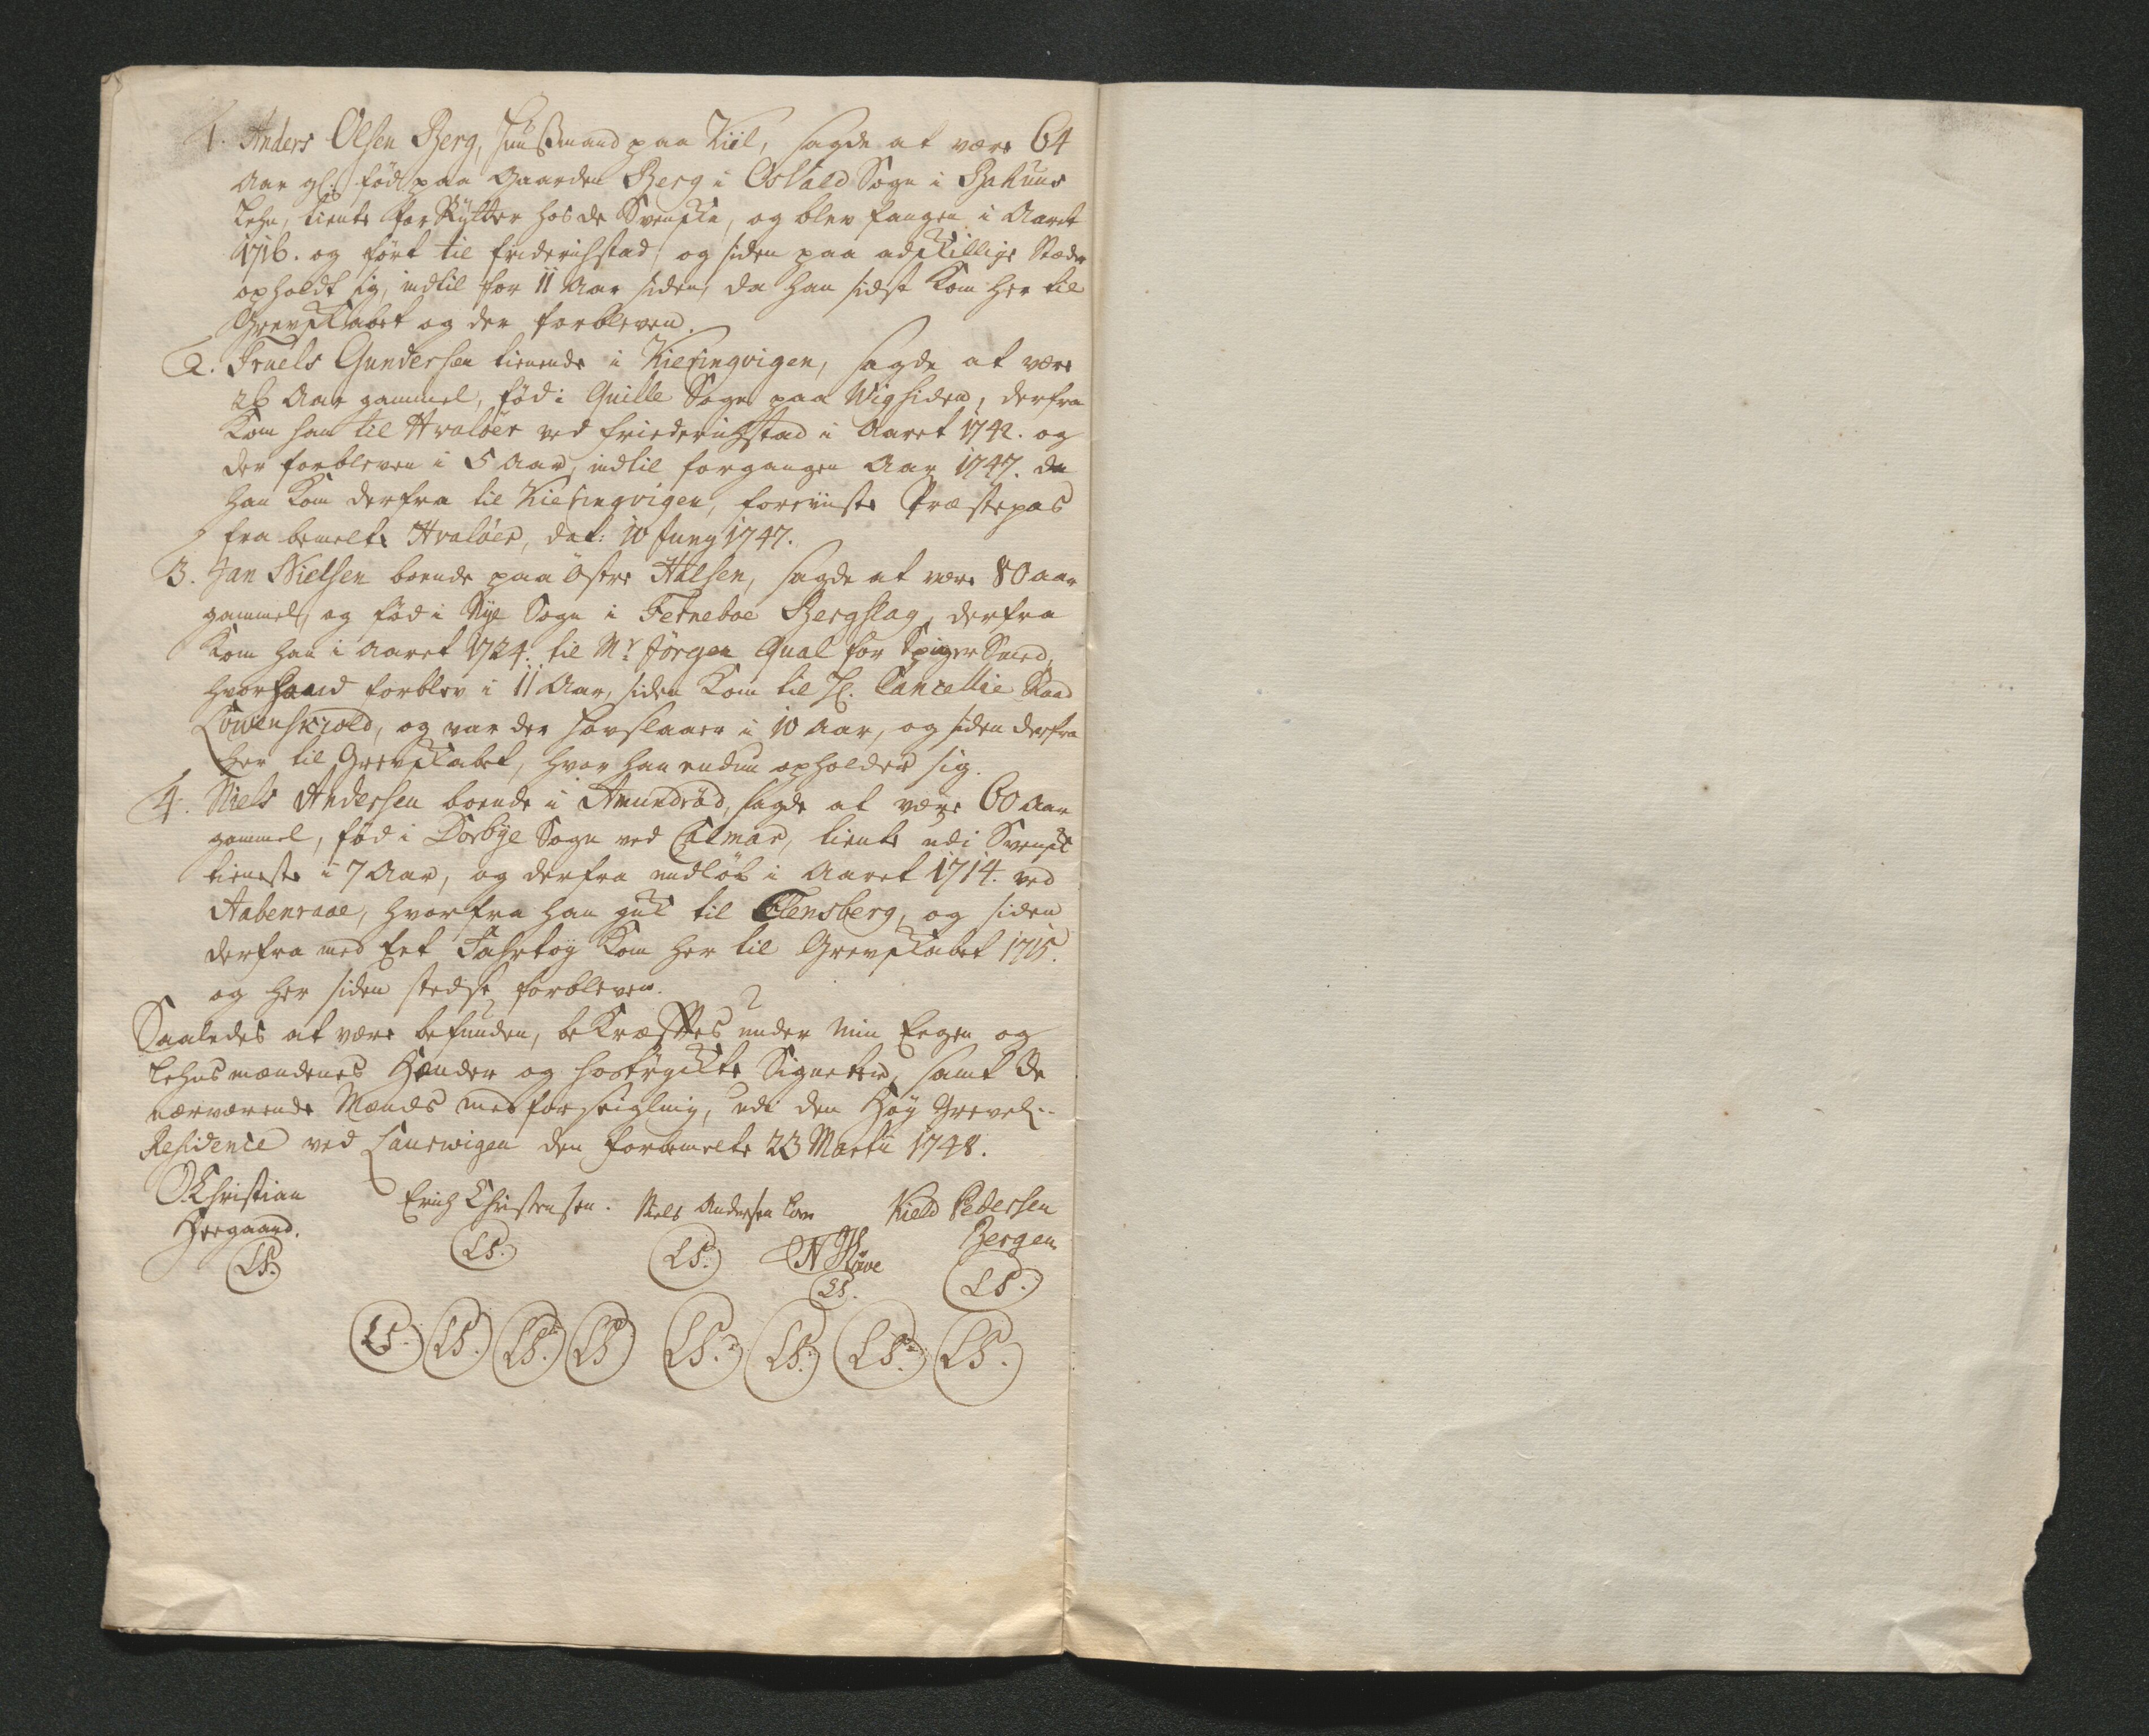 1. Anders Olsen Berg, Huusmand paa Kiil, sagde at være 64
Aar gl: föd paa Gaarden Berg i Osvald Sogn i Bahuus
Lehn, tiente for Rytter hos de Svenske, og blev fangen i Aaret
1716. og fört til Friderichstad og siden paa adskillige Stæder
opholdt sig, indtil for 11 Aar siden, da han sidst kom her til
Grevskabet og der forbleven.
2. Truels Gundersen tienende i Kieringvigen, sagde at være
26 Aar gammel, föd i Quille Sogn paa Wigsiden, derfra
kom han til Hvalöer ved Friederichstad i Aaret 1742. og
der forbleven i 5 Aar, indtil forgangen Aar 1747. da
han kom derfra til Kieringvigen, foreviiste Præstepas
fra bemelte Hvalöer, dat: 10 Juny 1747.
3. Jan Nielsen boende paa Östre Halsen, sagde at være 80 aar
gammel, og föd i Nye Sogn i Ferneboe Bergslag, derfra
kom han i Aaret 1724. til Mr Jörgen Qual for Spiger Smed,
hvor hand forblev i 11 Aar, siden kom til Hl. Cancellie Raad
Löwenskiold, og var der Hovslaaer i 10 Aar, og siden derfra
her til Grevskabet, hvor han endnu opholder sig.
4. Niels Andersen boende i Amundröd, sagde at være 60 Aar
gammel, föd i Dörbye Sogn ved Calmar, tiente udi Svensk
tieneste i 7 Aar, og derfra undlöb i Aaret 1714. ved
Aabenraae, hvorfra han gik til Flensberg, og siden
derfra med eet Fahrtöy kom her til Grevskabet 1715.
og her siden stedse forbleven.
Saaledes at være befunden, bekræftes under min Eegen og
Lehnsmændenes Hænder og hostrygte Signeter, samt de
nærværende Mænds medforseigling, udi den Höy Grevel:
Residence ved Laurwigen den forbemelte 23 Martii 1748.
O. Christian Erich Christensen. Niels Andersen Kield Pedersen
Heegaard. Bergen
LS. LS. LS. N LS. LS.
LS. LS. LS. LS. LS. LS. LS. LS.